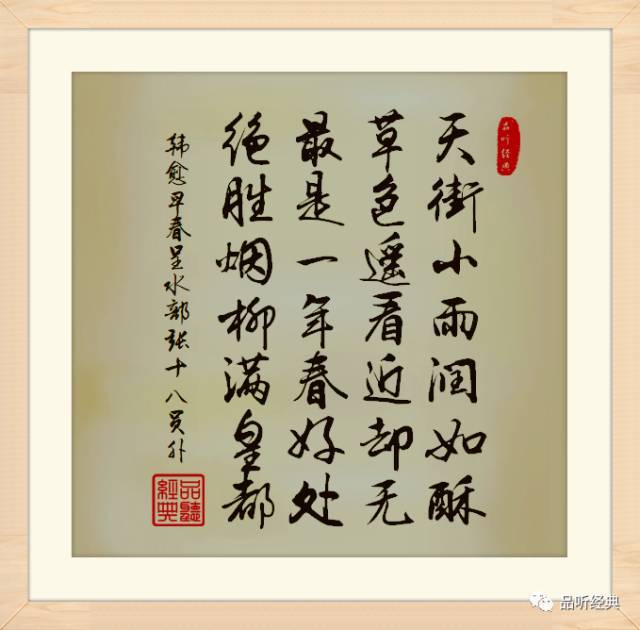 品听经典
天街小雨润如酥
草色遥看近却无
最是一年春好处
绝胜烟柳满皇都
韩愈早春呈水部张十八员外
品聽經典
品听经典